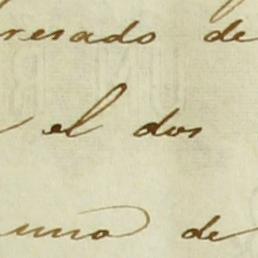 resado de
el dos
una de